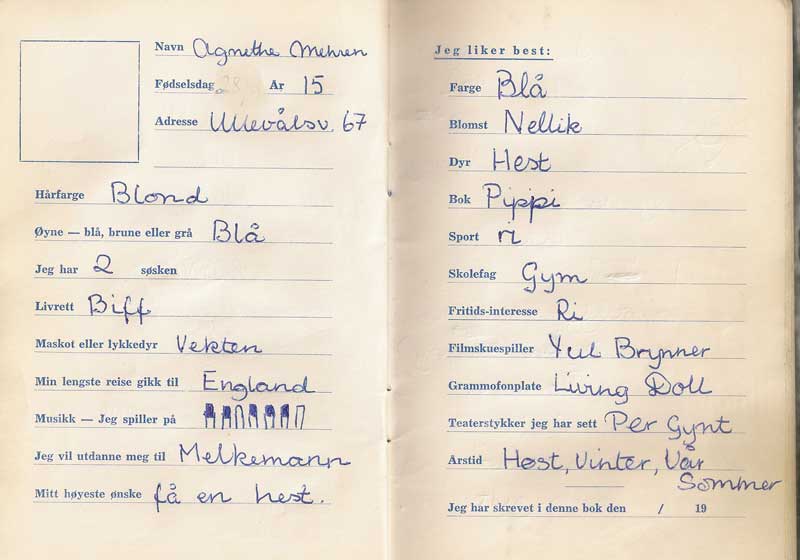 Navn Agnethe Mehren
Fødselsdag År 15
Adresse Ullevålsv. 67
Hårfarge Blond
Øyne — blå, brune eller grå Blå
Jeg har 2 søsken
Livrett Biff
Maskot eller lykkedyr Vekten
Min lengste reise gikk til England
Musikk — Jeg spiller på
Jeg vil utdanne meg til Melkemann
Mitt høyeste ønske få en hest.
Jeg liker best:
Farge Blå
Blomst Nellik
Dyr Hest
Bok Pippi
Sport ri
Skolefag Gym
Fritids-interesse Ri
Filmskuespiller Yul Brynner
Grammofonplate Living Doll
Teaterstykker jeg har sett Per Gynt
Årstid Høst, Vinter, Vår
Sommer
Jeg har skrevet i denne bok den / 19